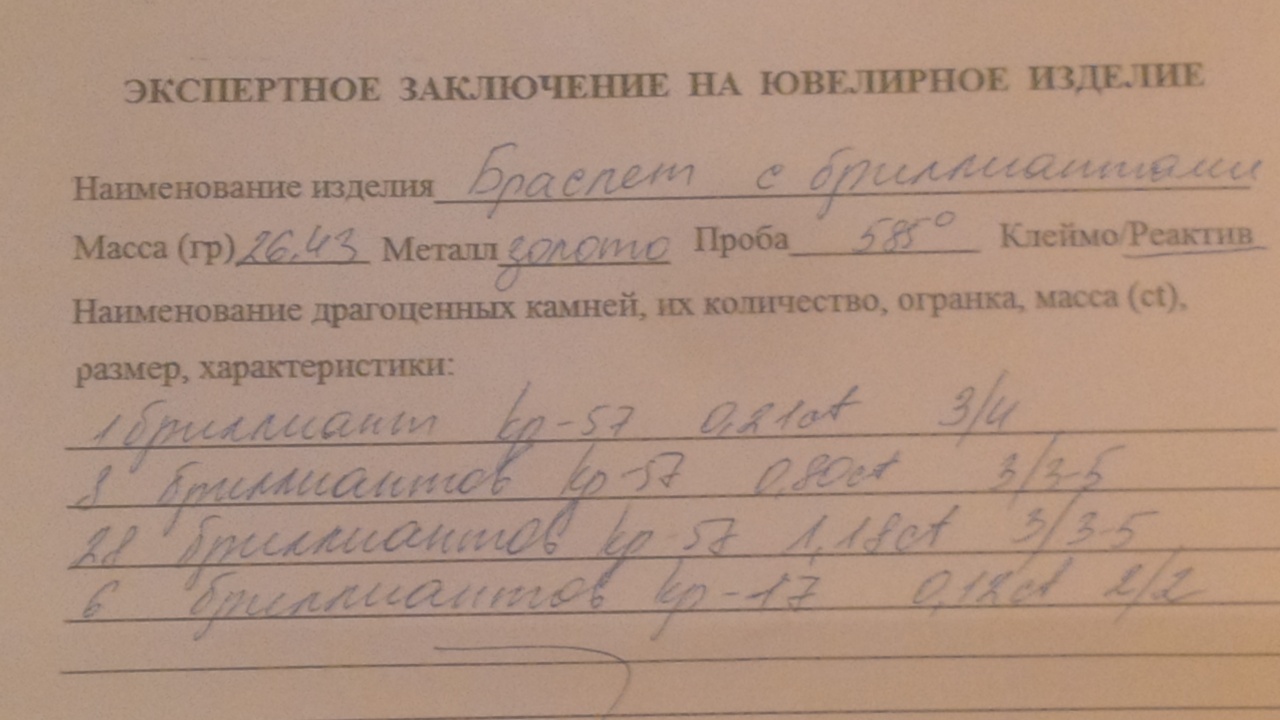 ЭКСПЕРТНОЕ ЗАКЛЮЧЕНИЕ НА ЮВЕЛИРНОЕ ИЗДЕЛИЕ
Наименование изделия Браслет с бриллиантами
Масса (гр) 26,43 Металл золото Проба 585° Клеймо/Реактив
Наименование драгоценных камней, их количество, огранка, масса (ct),
размер, характеристики:
1 бриллиант кр-57 0,21ct 3/4
8 бриллиантов кр-57 0,80ct 3/3-5
28 бриллиантов кр-57 1,18ct 3/3-5
6 бриллиантов кр-17 0,12ct 2/2